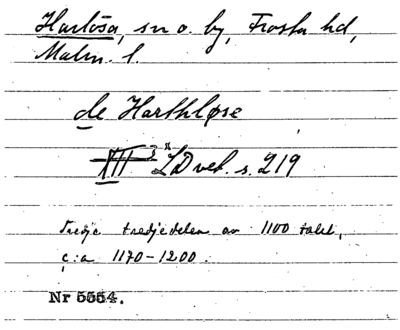 Harlösa, sn o. by, Frosta hd,
Malm. l.
de Harthløse
XIII 3 LD vet. s. 219
Tredje tredjedelen av 1100 talet,
c:a 1170-1200.
Nr 5554.